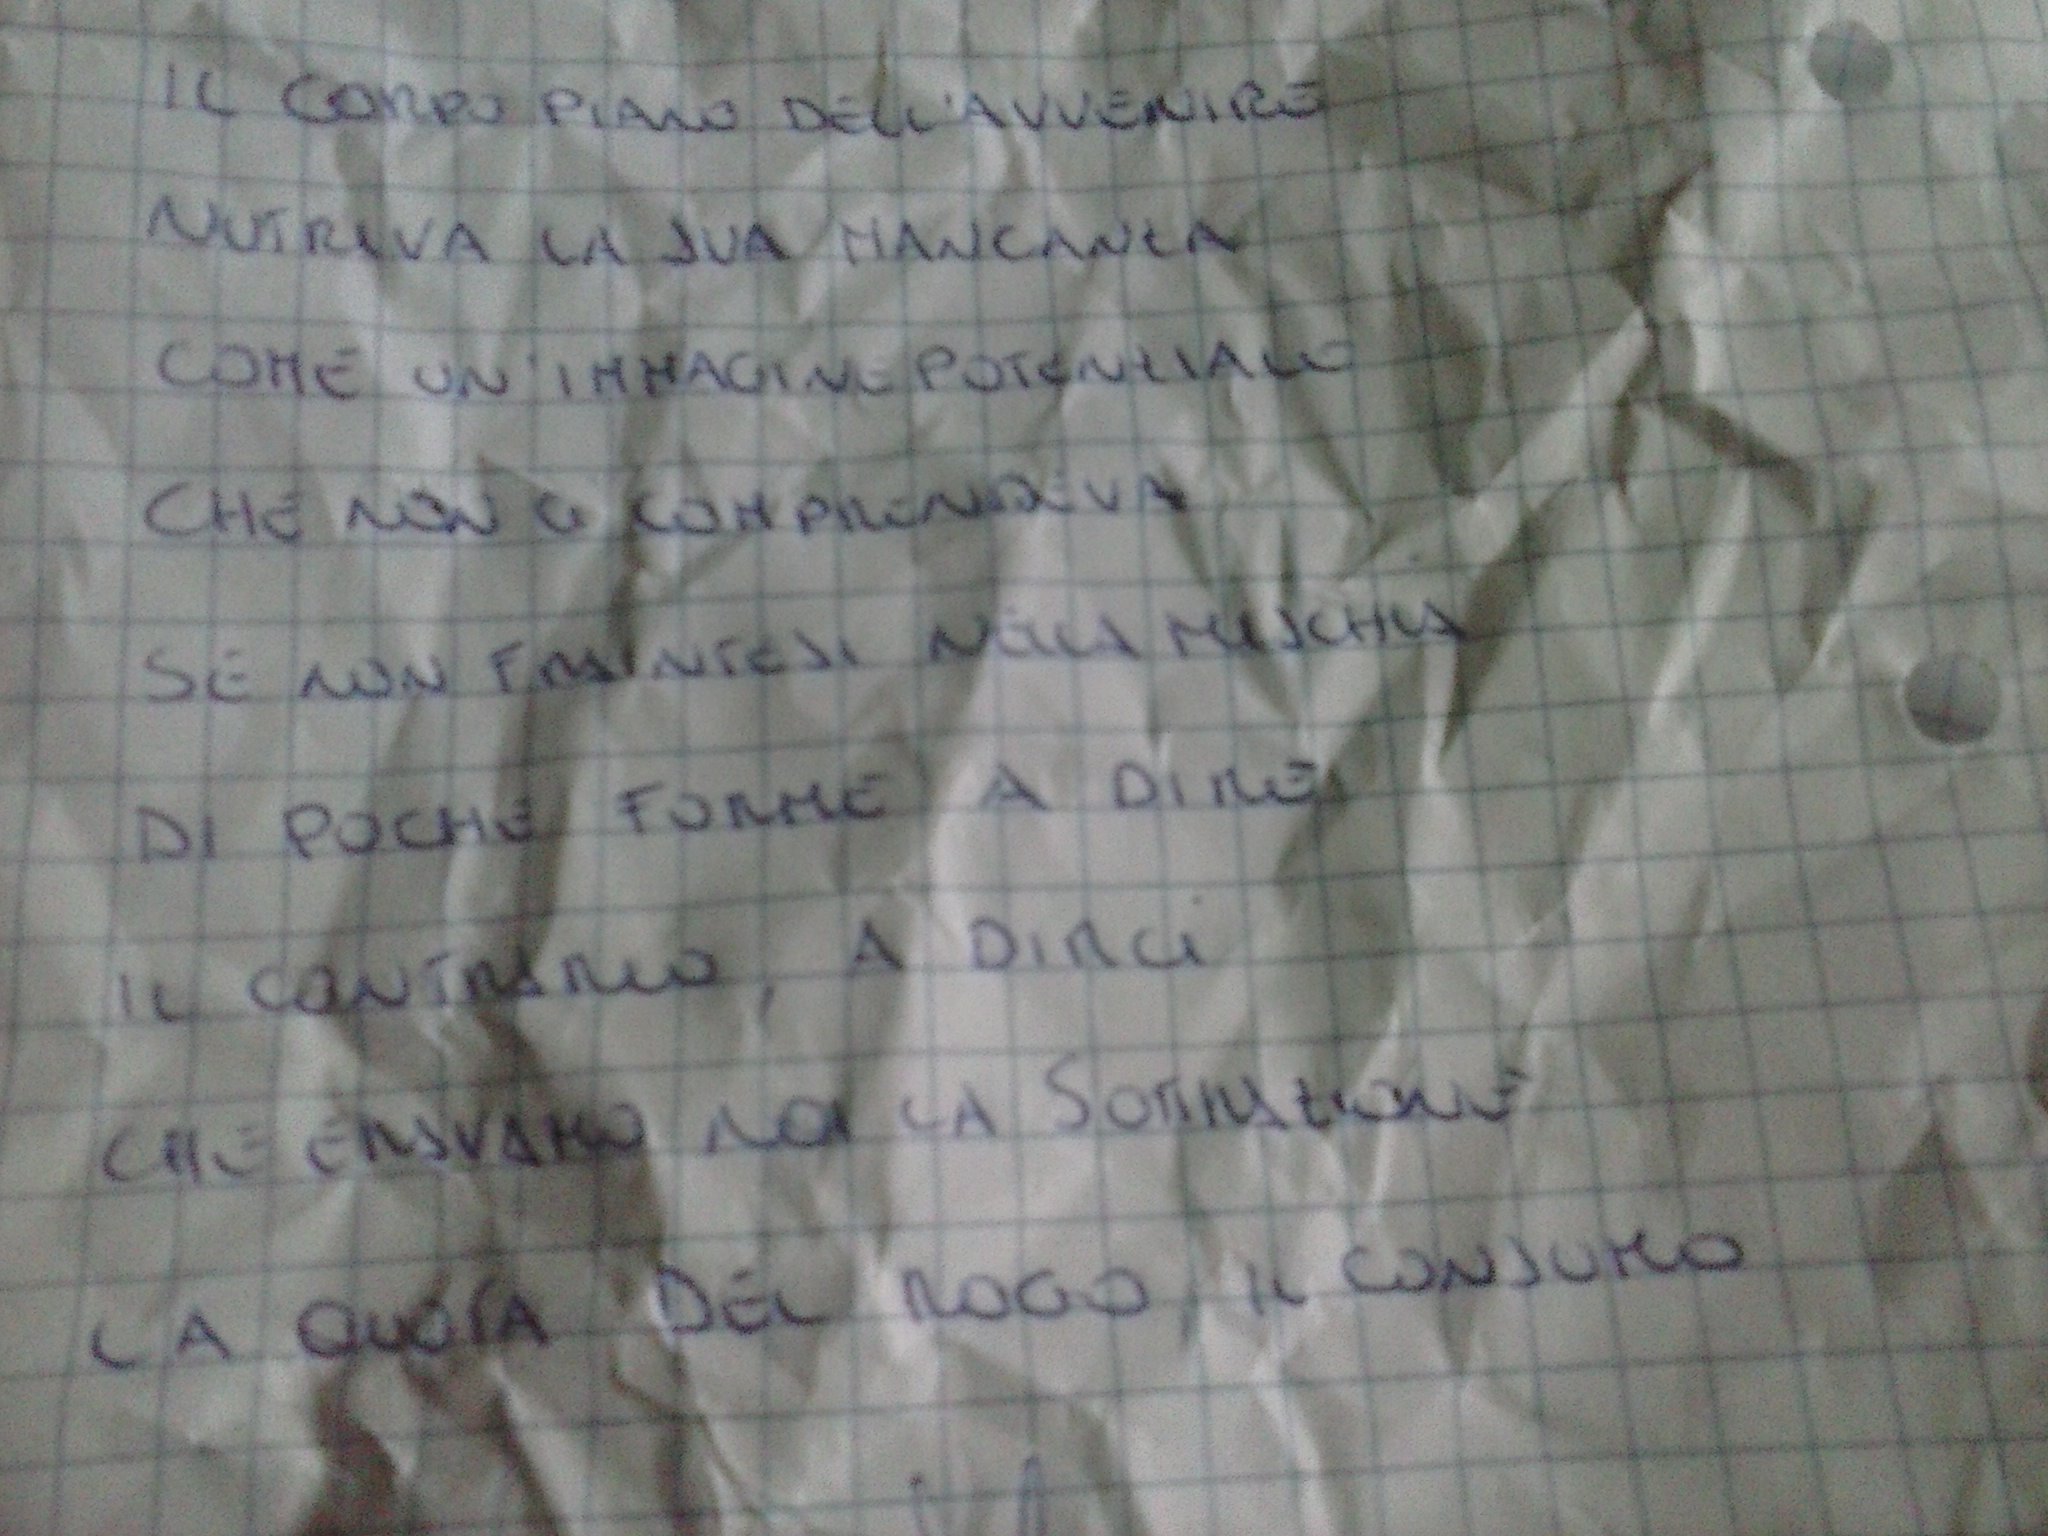 IL CORPO PIANO DELL'AVVENIRE
NUTRIVA LA SUA MANCANZA
COME UN'IMMAGINE POTENZIALE
CHE NON CI COMPRENDEVA
SE NON FRAINTESI NELLA MISCHIA
DI POCHE FORME A DIRE
IL CONTRARIO, A DIRCI
CHE ERAVAMO NOI LA SOTTRAZIONE
LA QUOTA DEL ROGO, IL CONSUMO